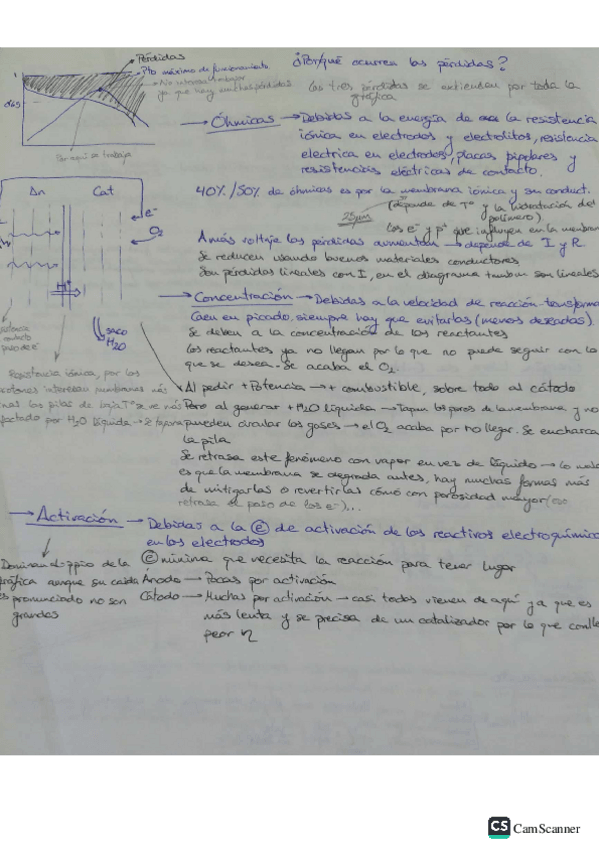 Pérdidas
Pto máximo de funcionamiento.
No interesa trabajar
ya que hay muchas pérdidas
1
Por aquí se trabaja
¿Por qué ocurren las pérdidas?
Las tres pérdidas se entienden por toda la
gráfica
→ Óhmicas → Debidas a la energía de la resistencia
iónica en electrodos y electrolitos, resistencia
electrica en electrodos, placas bipolares y
resistencias eléctricas de contacto.
An Cat
e-
O2
H+
saco
H2O
40% / 50% de óhmicas es por la membrana iónica y su conduct.
(depende de Tº y la hidratación del
polímero)
25μm
los e- y p+ que influyen en la membr
A más voltaje las pérdidas aumentan → depende de I y R.
Se reducen usando buenos materiales conductores
Son pérdidas lineales con I, en el diagrama también son lineales
→ Concentración → Debidas a la velocidad de reacción transforma
Caen en picado, siempre hay que evitarlas (menos deseadas)
Se deben a la concentración de los reactantes
Los reactantes ya no llegan por lo que no puede seguir con lo
que se desea. Se acaba el O2.
contacto
Resistencia iónica, por los
protones interesan membranas más
finas las pilas de baja Tº se ve más
afectado por H2O líquida → se tapona
Al pedir + Potencia → + combustible, sobre todo al cátodo
Pero al generar + H2O líquida → Tapan los poros de la membrana y no
pueden circular los gases → el O2 acaba por no llegar. Se encharca
la pila
Se retrasa este fenómeno con vapor en vez de líquido → lo malo
es que la membrana se degrada antes, hay muchas formas más
de mitigarlas o revertirlas cómo con porosidad mayor (eso
retrasa el paso de los e-)...
→ Activación → Debidas a la e de activación de los reactivos electroquímico
en los electrodos
Dominan al ppio de la
gráfica aunque su caída
es pronunciado no son
grandas
e mínima que necesita la reacción para tener lugar
Ánodo → Pocas por activación
Cátodo → Muchas por activación → casi todas vienen de aquí ya que es
más lenta y se precisa de un catalizador por lo que conlle
peor η
CS CamScanner